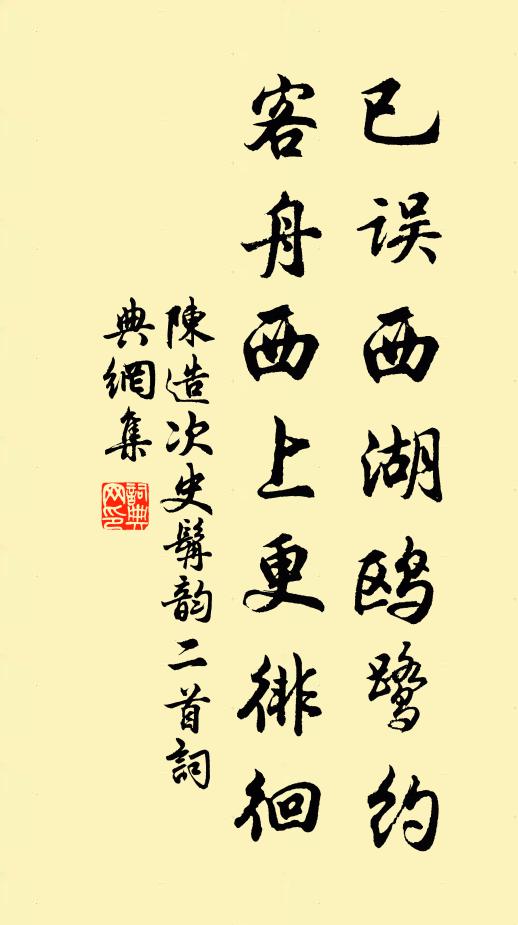 已误西湖鸥鹭约
客舟西上更徘徊
陳造次史髯韵二首詞
典網集
詞典
网印